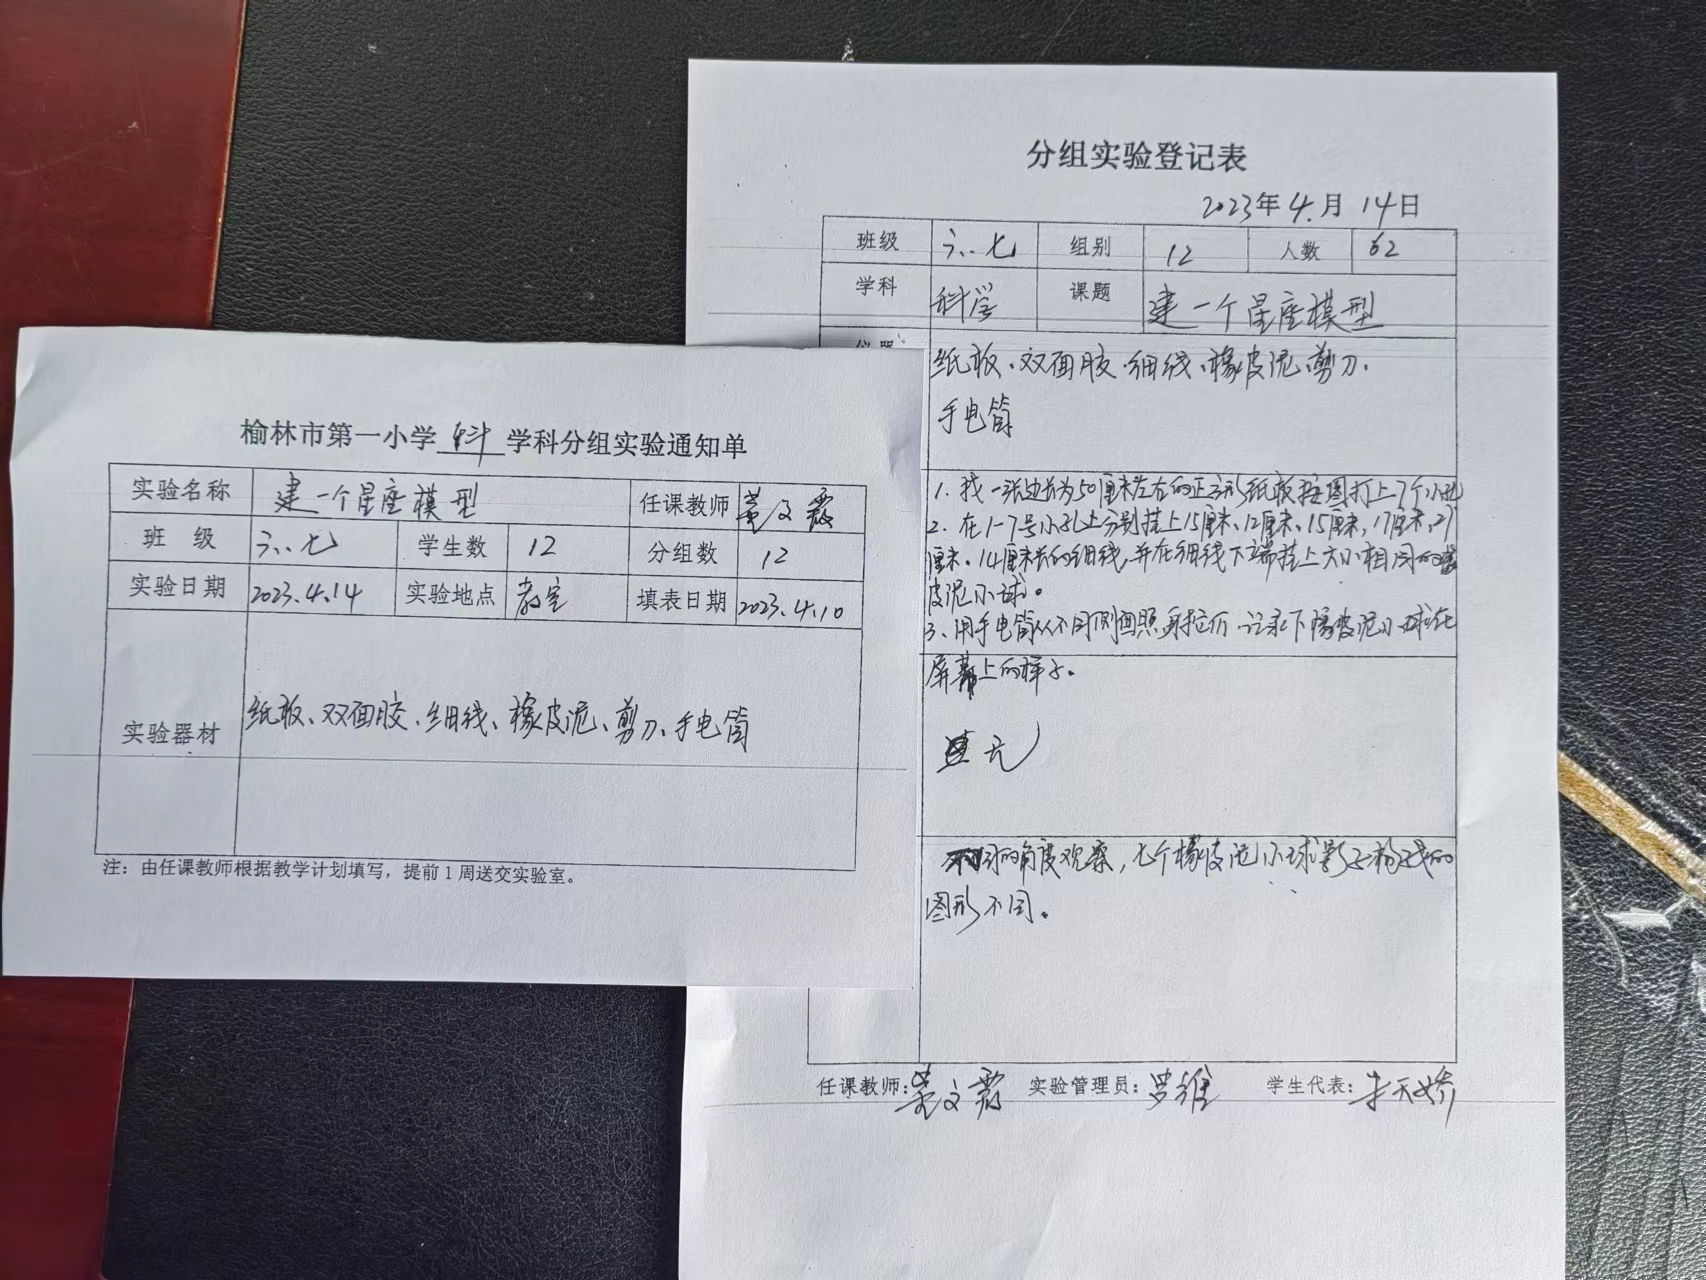 榆林市第一小学 科 学科分组实验通知单
实验名称 建一个星座模型 任课教师 文霞
班 级 六.七 学生数 12 分组数 12
实验日期 2023.4.14 实验地点 教室 填表日期 2023.4.10
实验器材 纸板、双面胶、细线、橡皮泥、剪刀、手电筒
注：由任课教师根据教学计划填写，提前1周送交实验室。
分组实验登记表
2023年4月14日
班级 六.七 组别 12 人数 62
学科 科学 课题 建一个星座模型
仪器
纸板、双面胶、细线、橡皮泥、剪刀、
手电筒
1. 找一张边长为50厘米左右的正方形纸板按图打上7个小孔
2. 在1-7号小孔上分别挂上15厘米、12厘米、15厘米，17厘米，27
厘米、14厘米长的细线，并在细线下端挂上大小相同的橡
皮泥小球。
3、用手电筒从不同侧面照射 记录下橡皮泥小球在
屏幕上的样子。
完
的角度观察，七个橡皮泥小球影子 的
图形不同。
任课教师： 文霞 实验管理员：罗维 学生代表： 天娇